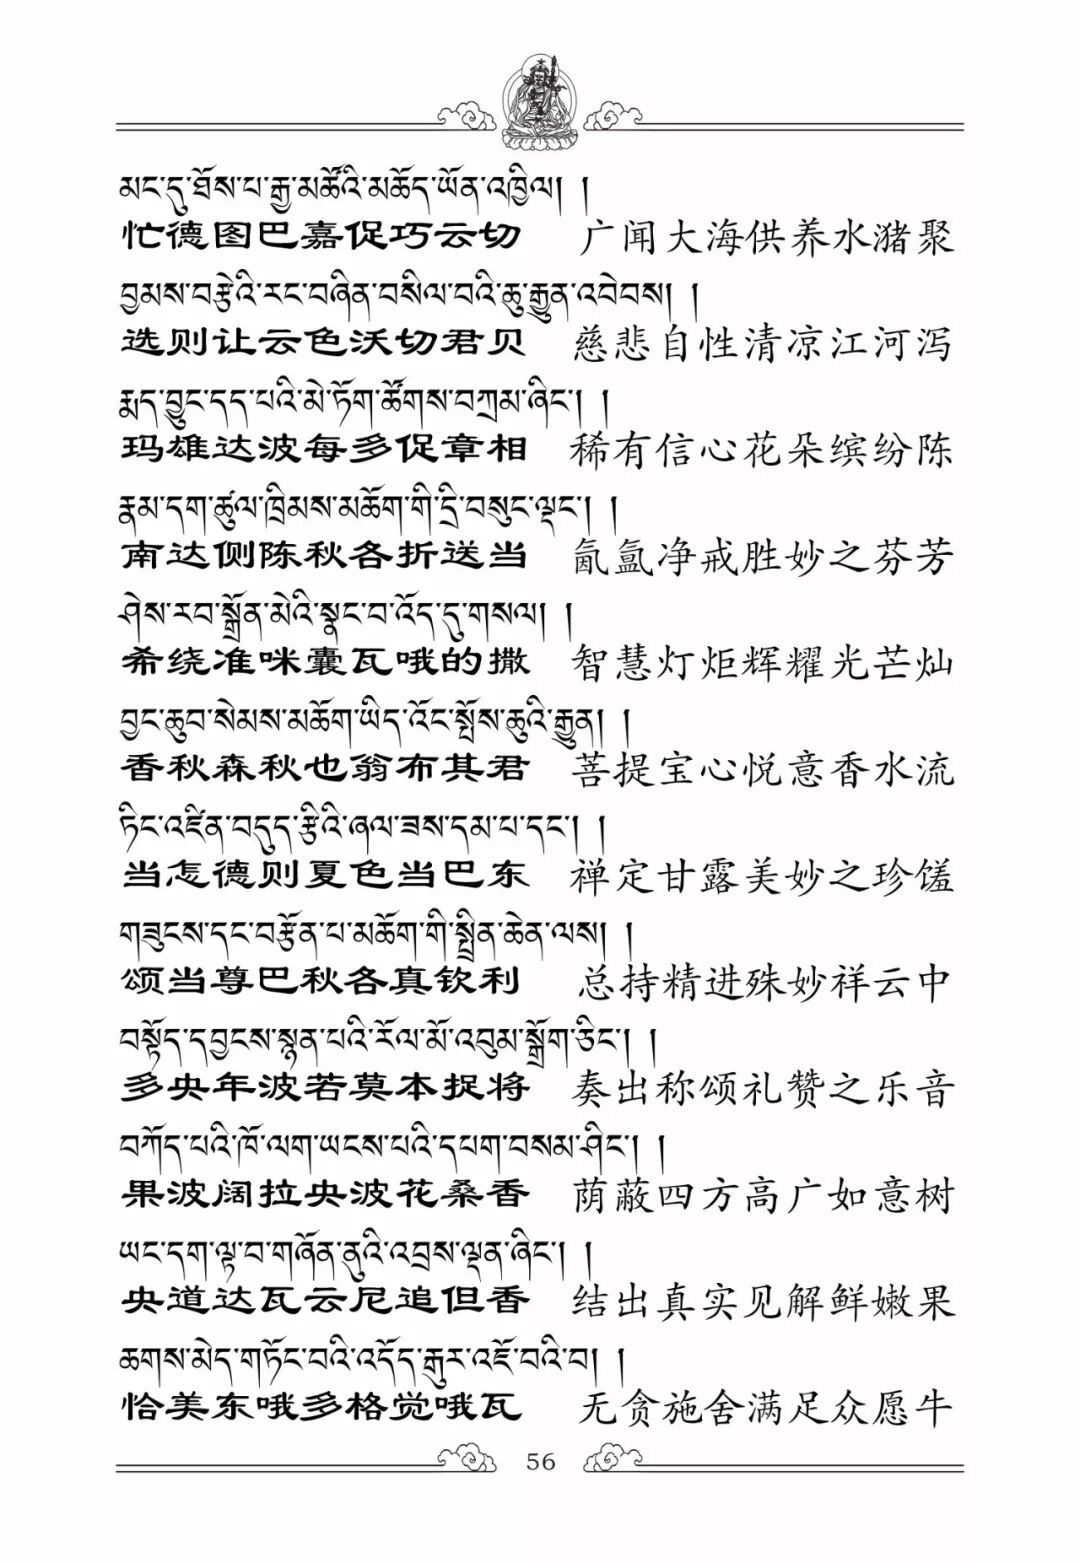 མང་དུ་ཐོས་པ་རྒྱ་མཚོའི་མཆོད་ཡོན་འཁྱིལ། །
忙德图巴嘉促巧云切 广闻大海供养水潴聚
བྱམས་བརྩེའི་རང་བཞིན་བསིལ་བའི་ཆུ་རྒྱུན་འབེབས། །
选则让云色沃切君贝 慈悲自性清凉江河泻
རྨད་བྱུང་དད་པའི་མེ་ཏོག་ཚོགས་བཀྲམ་ཞིང་། །
玛雄达波每多促章相 稀有信心花朵缤纷陈
རྣམ་དག་ཚུལ་ཁྲིམས་མཆོག་གི་དྲི་བསུང་ལྡང་། །
南达侧陈秋各折送当 氤氲净戒胜妙之芬芳
ཤེས་རབ་སྒྲོན་མེའི་སྣང་བ་འོད་དུ་གསལ། །
希绕准咪囊瓦哦的撒 智慧灯炬辉耀光芒灿
བྱང་ཆུབ་སེམས་མཆོག་ཡིད་འོང་སྤོས་ཆུའི་རྒྱུན། །
香秋森秋也翁布其君 菩提宝心悦意香水流
ཏིང་འཛིན་བདུད་རྩིའི་ཞལ་ཟས་དམ་པ་དང་། །
当怎德则夏色当巴东 禅定甘露美妙之珍馐
གཟུངས་དང་བརྩོན་པ་མཆོག་གི་སྤྲིན་ཆེན་ལས། །
颂当尊巴秋各真钦利 总持精进殊妙祥云中
བསྟོད་དབྱངས་སྙན་པའི་རོལ་མོ་འབུམ་སྒྲོག་ཅིང་། །
多央年波若莫本捉将 奏出称颂礼赞之乐音
བཀོད་པའི་ཁོ་ལག་ཡངས་པའི་དཔག་བསམ་ཤིང་། །
果波阔拉央波花桑香 荫蔽四方高广如意树
ཡང་དག་ལྟ་བ་གཞོན་ནུའི་འབྲས་ལྡན་ཞིང་། །
央道达瓦云尼追但香 结出真实见解鲜嫩果
ཆགས་མེད་གཏོང་བའི་འདོད་རྒུར་འཇོ་བའི་བ། །
恰美东哦多格觉哦瓦 无贪施舍满足众愿牛
56